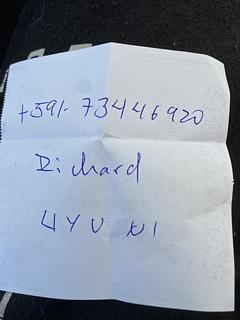 +591-73446920
Richard
UYU NI